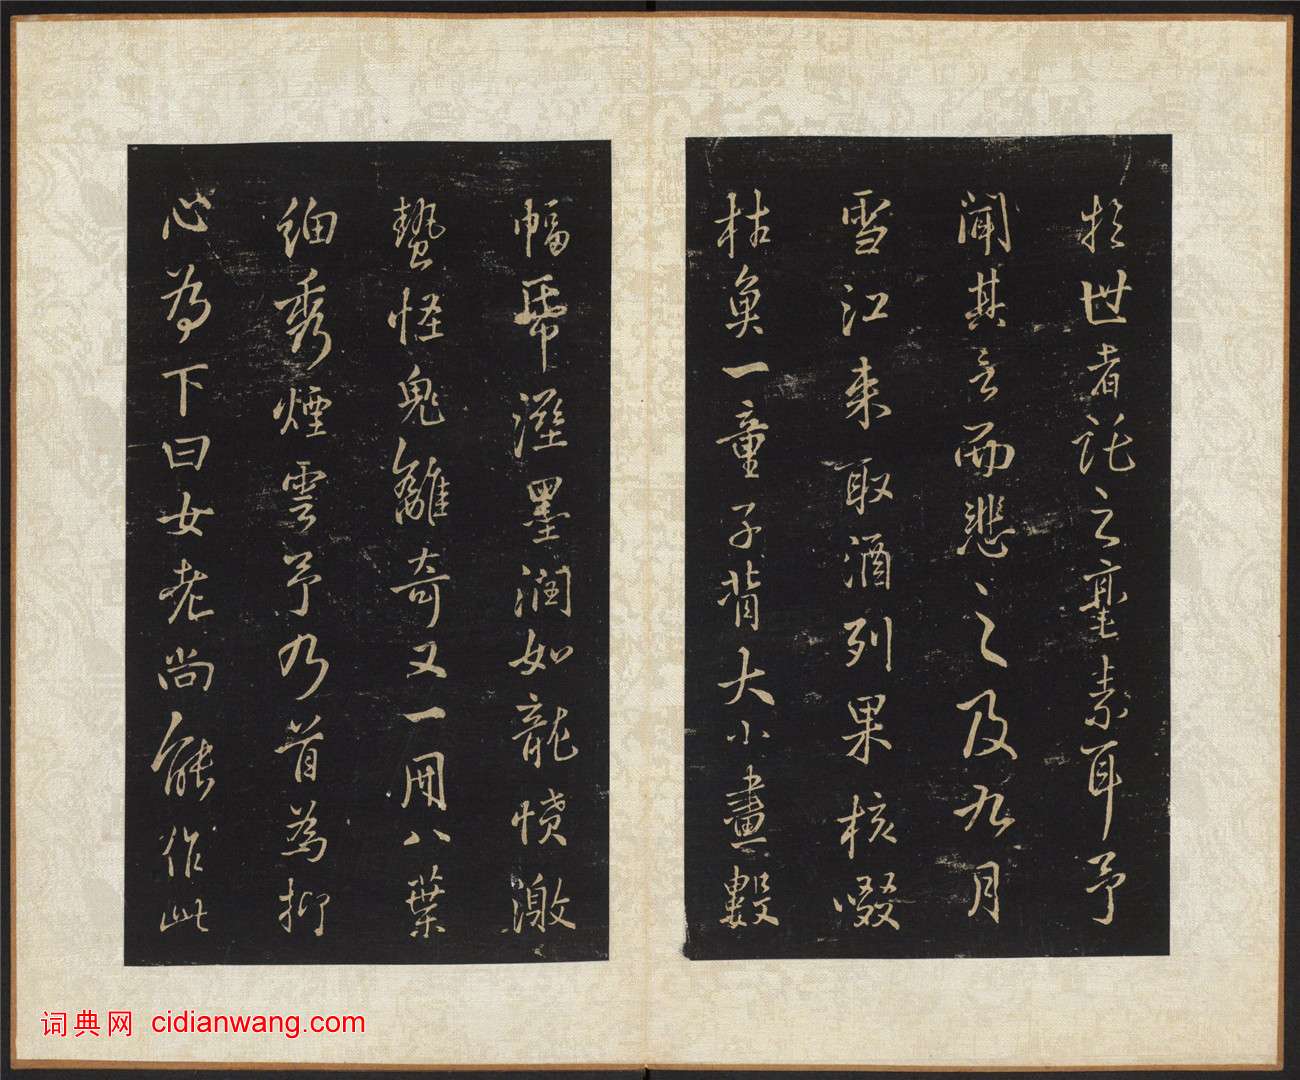 於世者託之毫素耳予
聞其言而悲之及九月
雪江来取酒列果核啜
枯魚一童子背大小畫數
幅帋溼墨润如龍憤激
蟄怪鬼離奇又一冊八葉
细秀煙雲予乃首為抑
心為下曰女老尚能作此
词典网 cidianwang.com